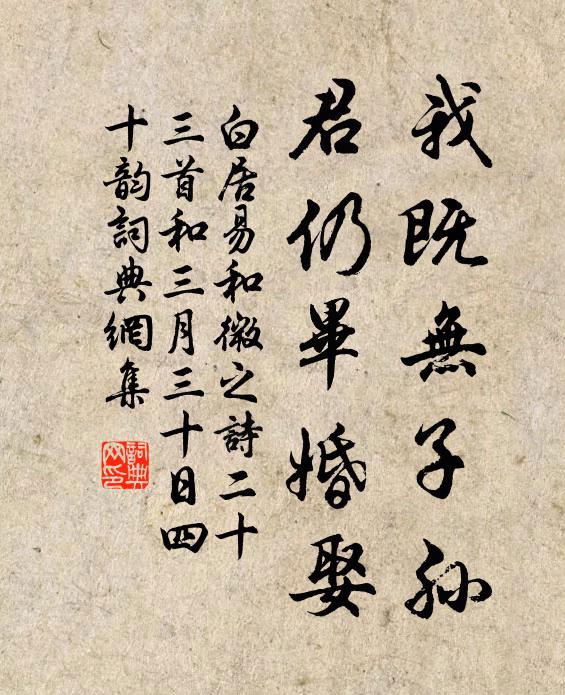 我既無子孫
君仍畢婚娶
白居易和微之詩二十
三首和三月三十日四
十韵詞典網集
詞典网印